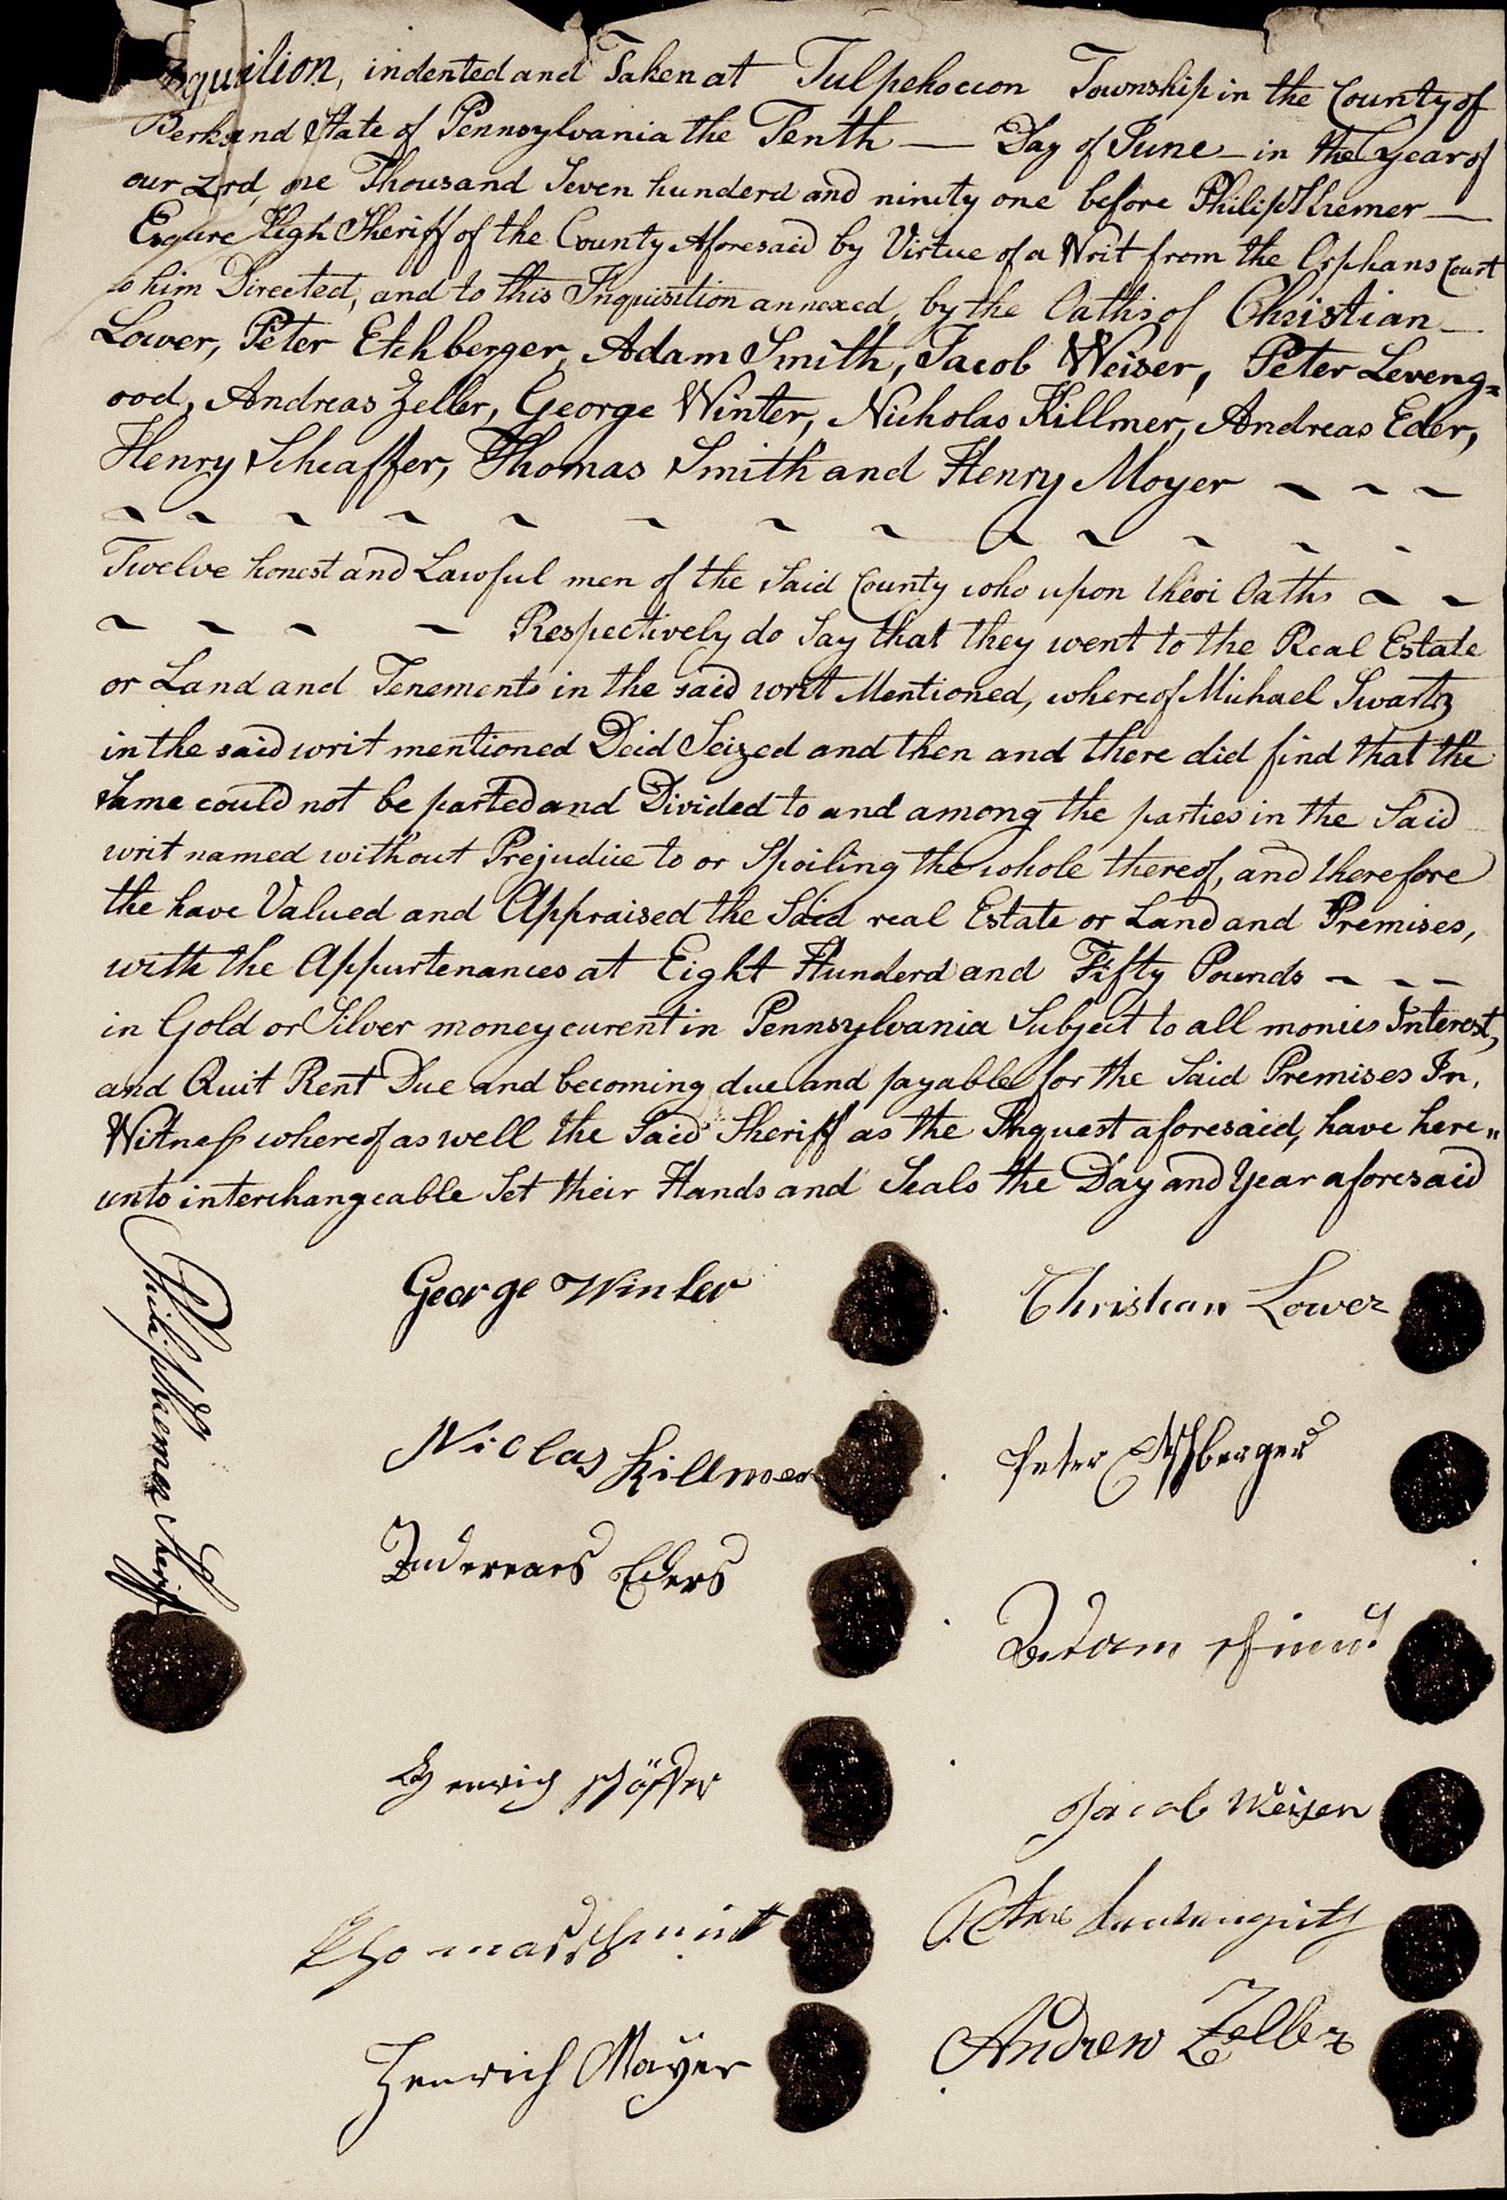 Inquisition, indented and Taken at Tulpehoccon Township in the County of
Berks and State of Pennsylvania the Tenth — Day of June — in the Year of
our Lord, one Thousand Seven hunderd and ninety one before Philip Kremer —
Esquire High Sheriff of the County Aforesaid by Virtue of a Writ from the Orphans Court
to him Directed, and to this Inquisition annexed, by the Oaths of Christian —
Lower, Peter Etchberger, Adam Smith, Jacob Weiser, Peter Leveng=
ood, Andreas Zeller, George Winter, Nicholas Killmer, Andreas Eder,
Henry Scheaffer, Thomas Smith and Henry Moyer ~ ~ ~
~ ~ ~ ~ ~ ~ ~ ~ ~ ~ ~ ~ ~
Twelve honest and Lawful men of the Said County who upon their Oaths ~ ~
~ ~ ~ ~ Respectively do Say that they went to the Real Estate
or Land and Tenements in the said writ Mentioned, whereof Michael Swartz
in the said writ mentioned Deid Seized and then and there did find that the
Same could not be parted and Divided to and among the parties in the Said
writ named without Prejudice to or Spoiling the whole thereof, and therefore
the have Valued and Appraised the Said real Estate or Land and Premises,
with the Appurtenances at Eight Hunderd and Fifty Pounds ~ ~ ~
in Gold or Silver money curent in Pennsylvania Subject to all monies Interest,
and Quit Rent Due and becoming due and payable for the Said Premises In,
Witness whereof as well the Said Sheriff as the Inquest aforesaid, have here"
unto interchangeable Set their Hands and Seals the Day and Year aforesaid
Philip Kremer Sheriff
George Winter
Christian Lower
Nicolas Killmer
Peter Etschberger
Andereas Eders
Adam Schmit
Henrich Schäffer
Jacob Weiser
Thomas Schmit
Peter
Andrew Zeller
Henrich Mayer